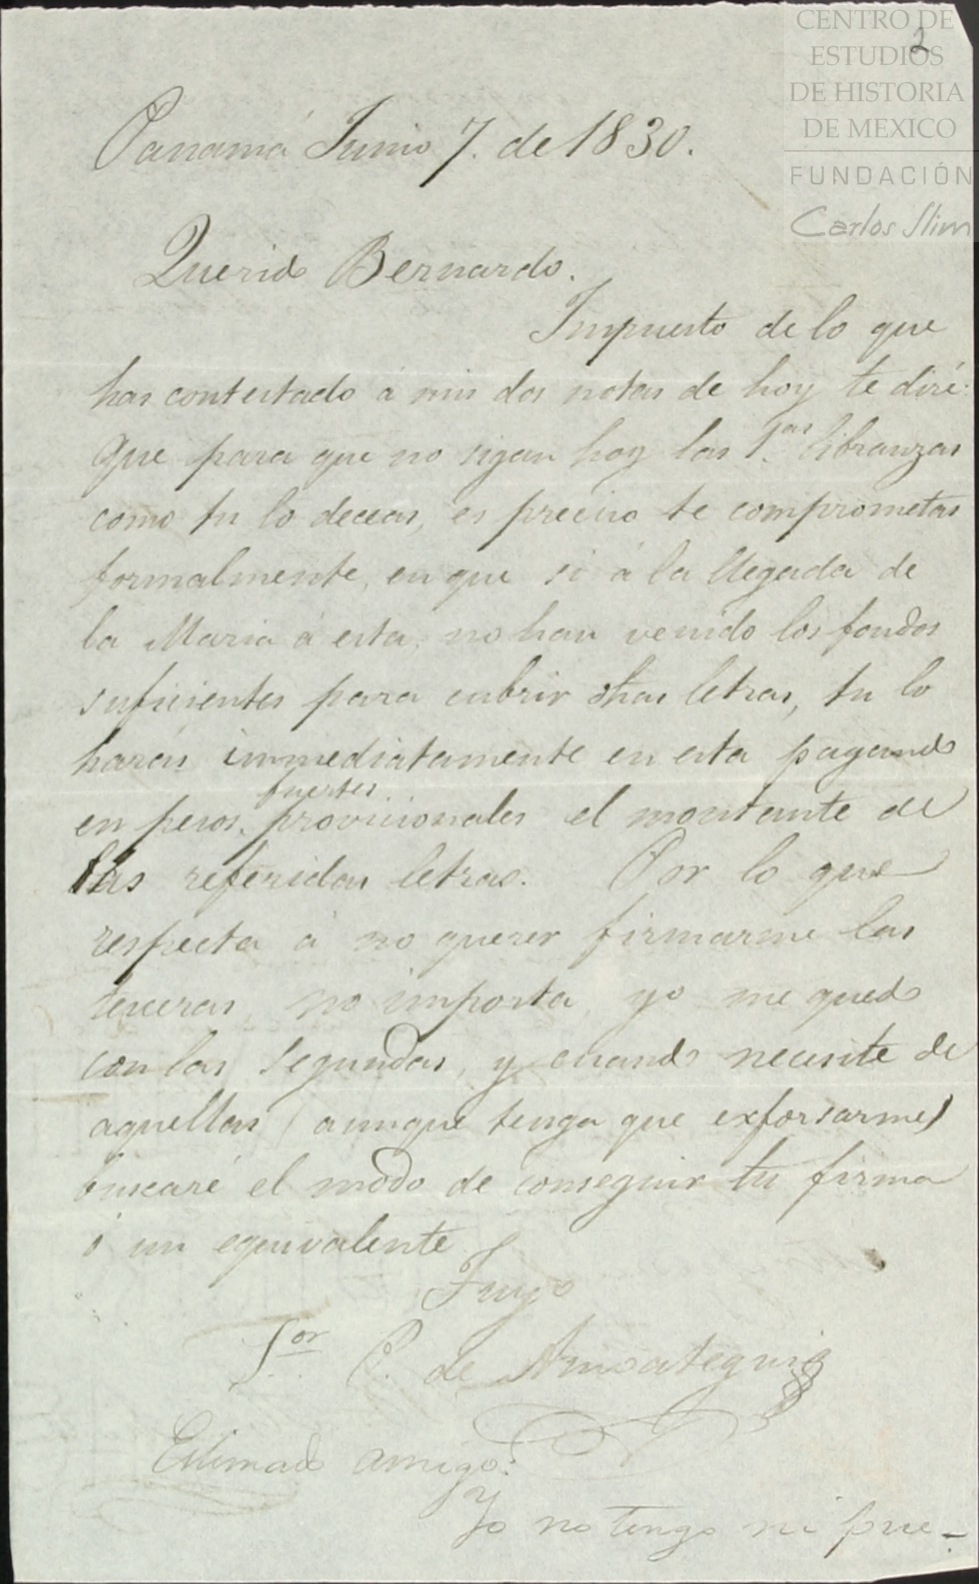 CENTRO DE
ESTUDIOS
DE HISTORIA
DE MEXICO
FUNDACIÓN
Carlos Slim
2
Panamá Junio 7. de 1830.
Querido Bernardo.
Impuesto de lo que
has contestado á mis dos notas de hoy te diré:
Que para que no sigan hoy las 1.as libranzas
como tu lo deceas, es preciso te comprometas
formalmente, en que si á la llegada de
la Maria á esta, no han venido los fondos
suficientes para cubrir dhas letras, tu lo
harás immediatamente en esta pagando
fuertes
en pesos, provicionales el montante de
las referidas letras. Por lo que
respecta á no querer firmarme las
terceras, no importa, yo me quedo
con las segundas, y cuando necesite de
aquellas (aunque tenga que exforsarme)
buscaré el modo de conseguir tu firma
ó un equivalente
Tuyo
Sor C. de
Estimado amigo:
Yo no tengo ni pue-